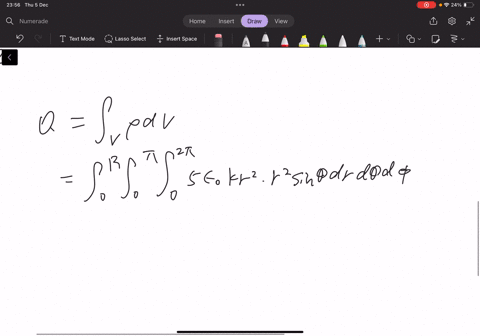 23:56 Thu 5 Dec
24%
Numerade
Home Insert Draw View
Text Mode Lasso Select Insert Space
Q = ∫_V ρdV
= ∫_0^R ∫_0^π ∫_0^{2π} 5ϵ₀ kr² · r² sinθ dr dθ dϕ